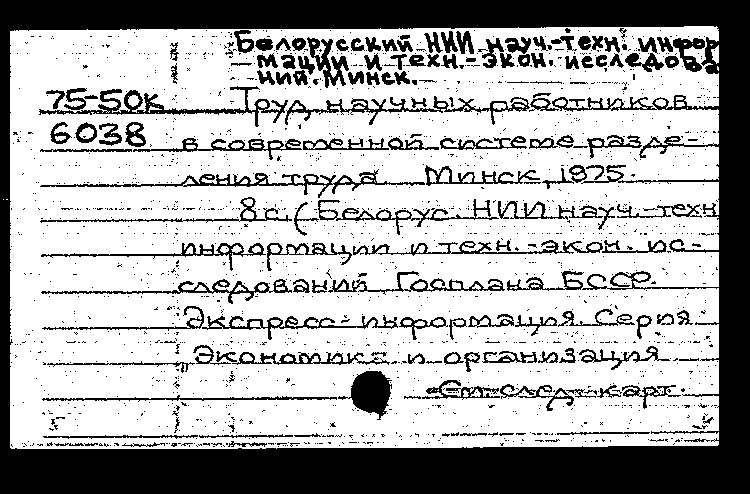 Белорусский НИИ науч.-техн. инфор
мации и техн.-экон. исследова
ний. Минск.
75-50к Труд научных работников
6038 в современной системе разде-
ления труда. Минск, 1975.
8 с. (Белорус. НИИ науч.-техн
информации и техн.-экон. ис-
следований Госплана БССР.
Экспресс-информация. Серия
"Экономика и организация
См. след. карт.